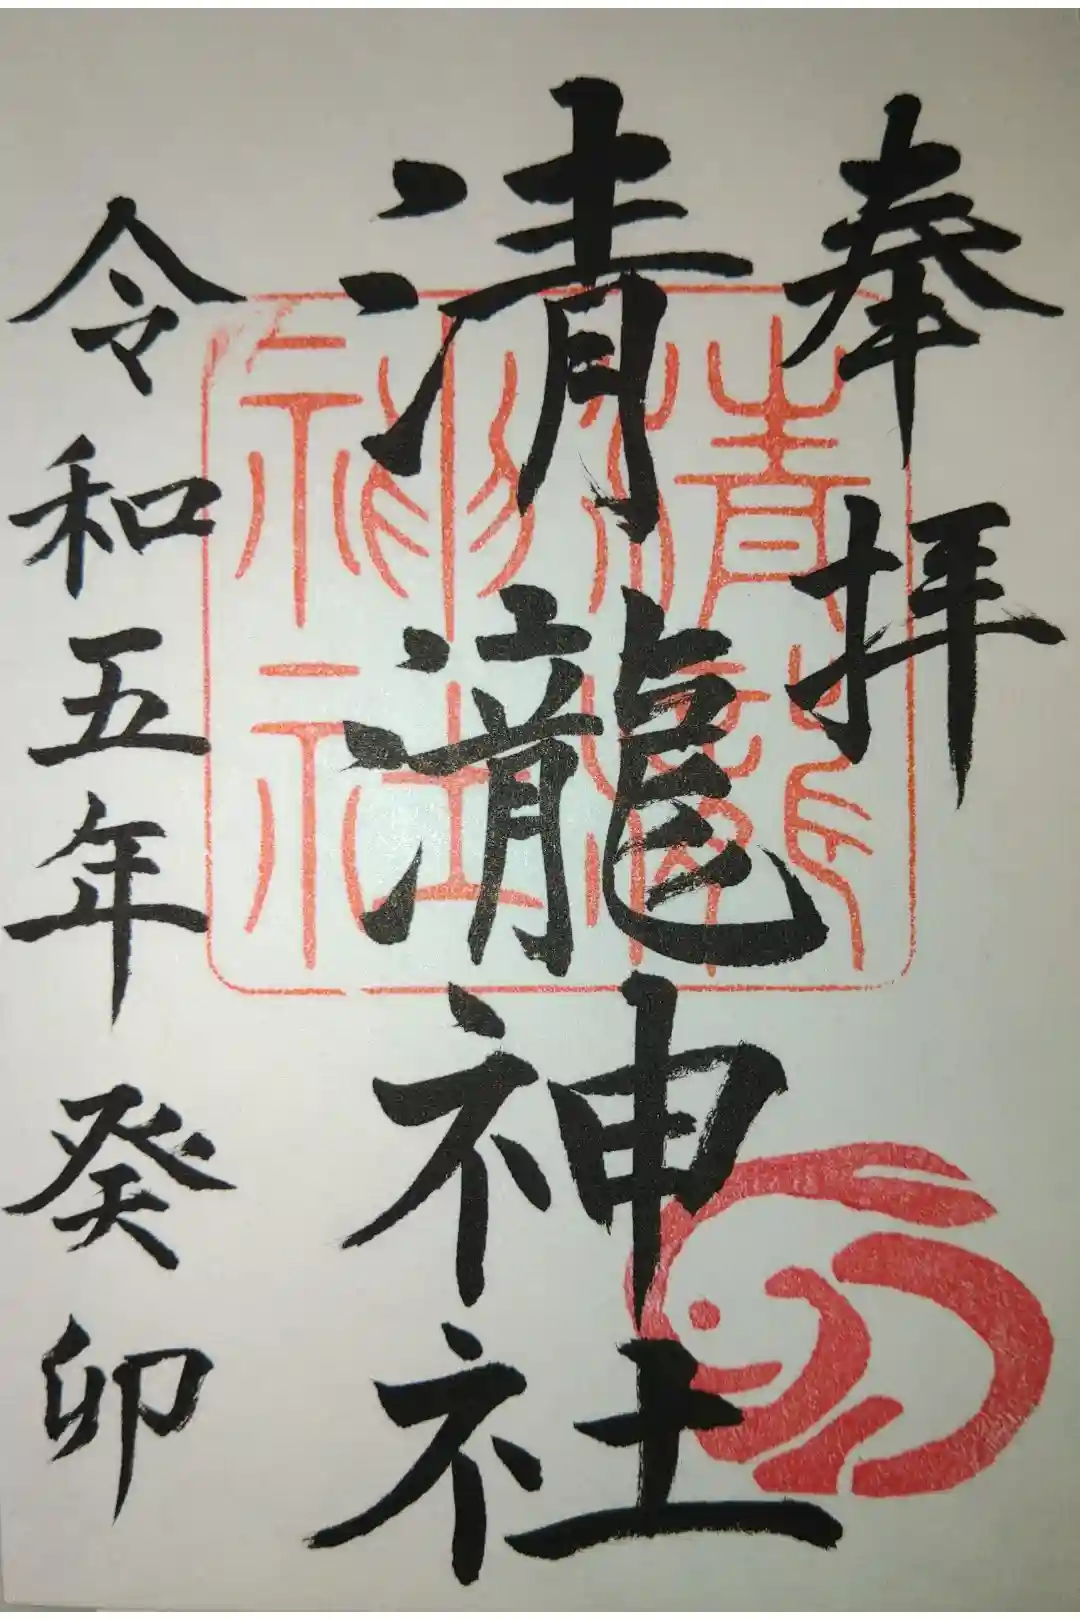 奉拝
清瀧神社
清瀧
神社
令和五年 癸卯